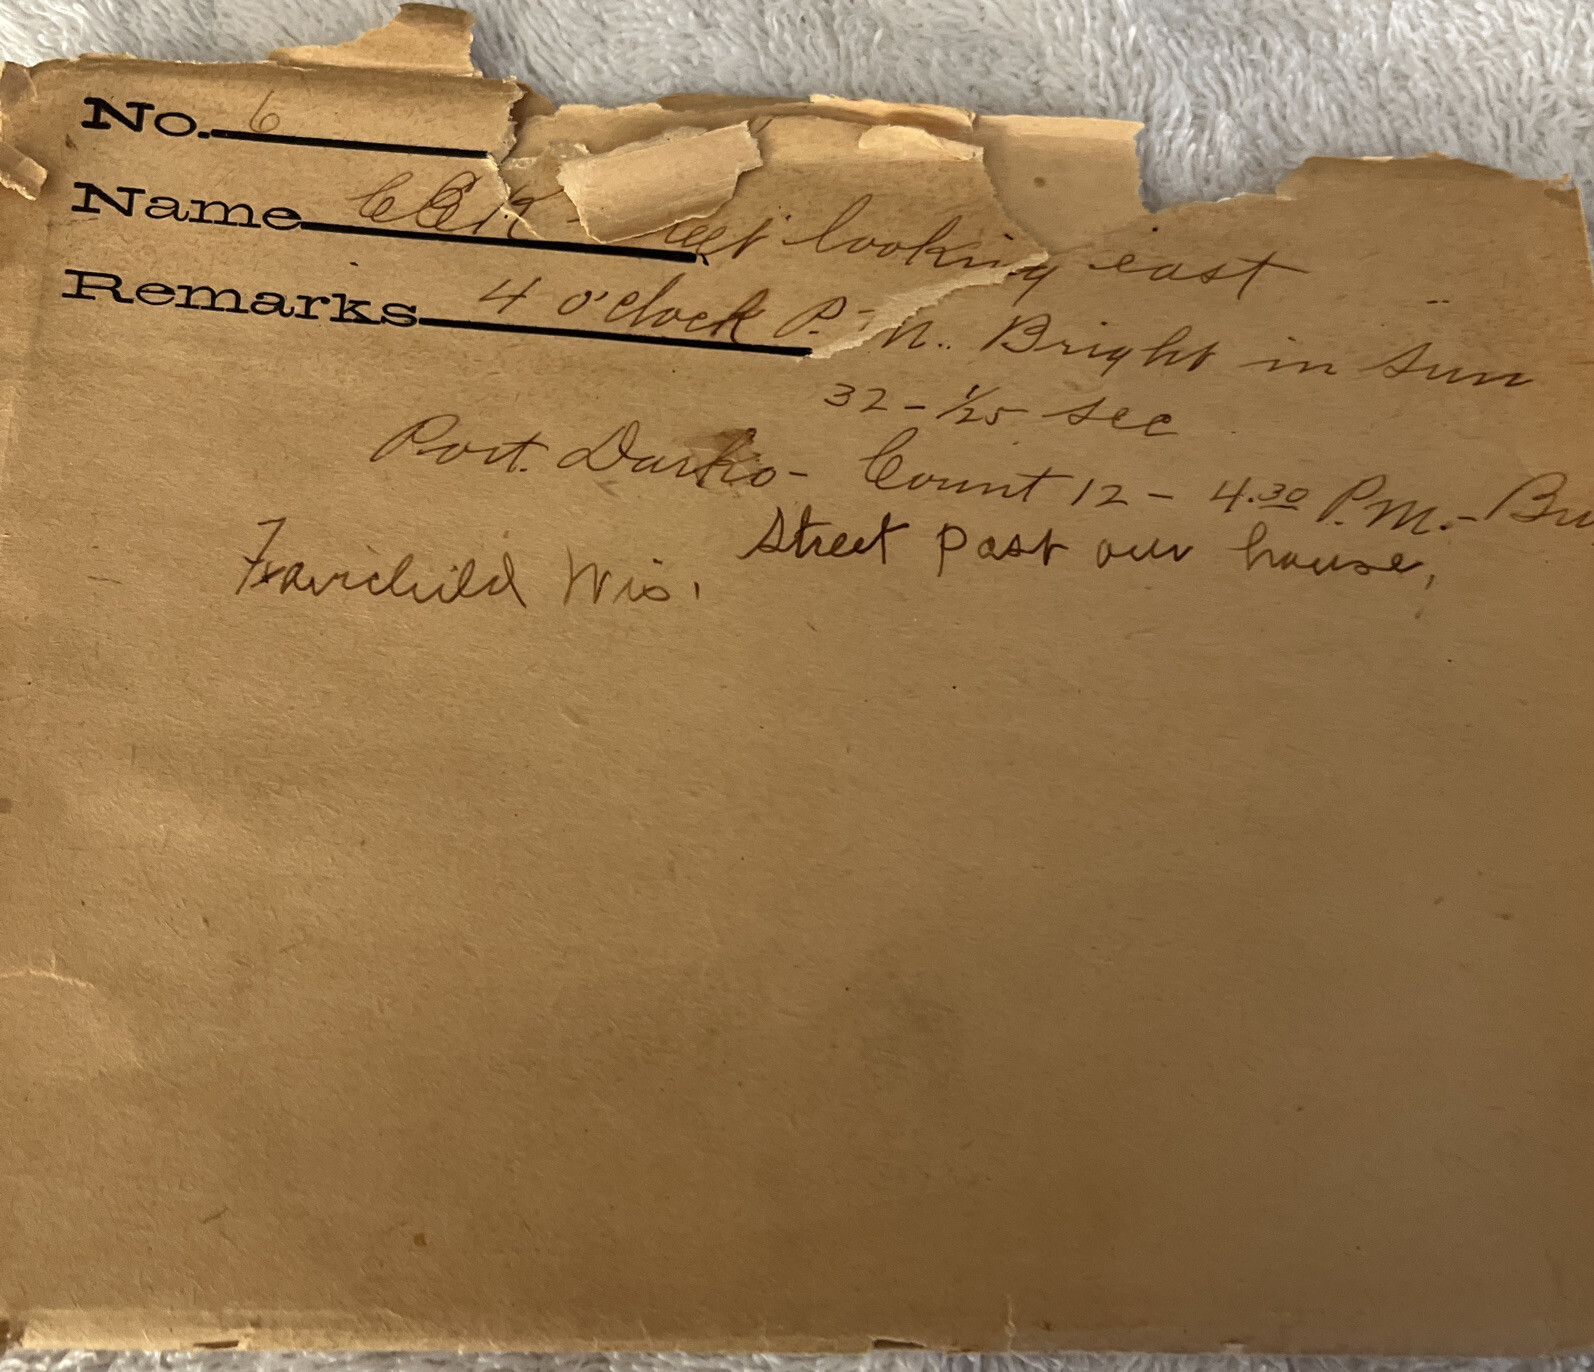 No. 6
Name looking east
Remarks 4 o'clock P. M.. Bright in sun
32 - 1/25 sec
Port. Darko - Count 12 - 4.30 P.M. -
Street past our house,
Fairchild Wis.